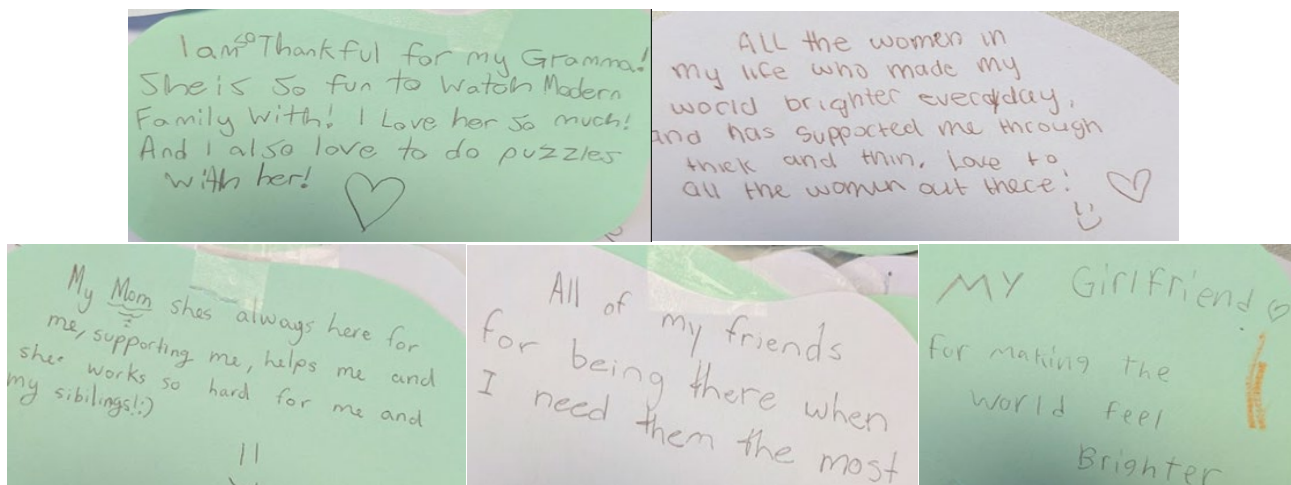 I am so Thankful for my Gramma!
She is so fun to Watch Modern
Family With! I Love her so much!
And I also love to do puzzles
with her!
ALL the women in
my life who made my
world brighter everyday,
and has supported me through
thick and thin. Love to
all the women out there!
My Mom shes always here for
me, supporting me, helps me and
she works so hard for me and
my sibilings!:)
All of my friends
for being there when
I need them the most
MY Girlfriend
for making the
world feel
Brighter